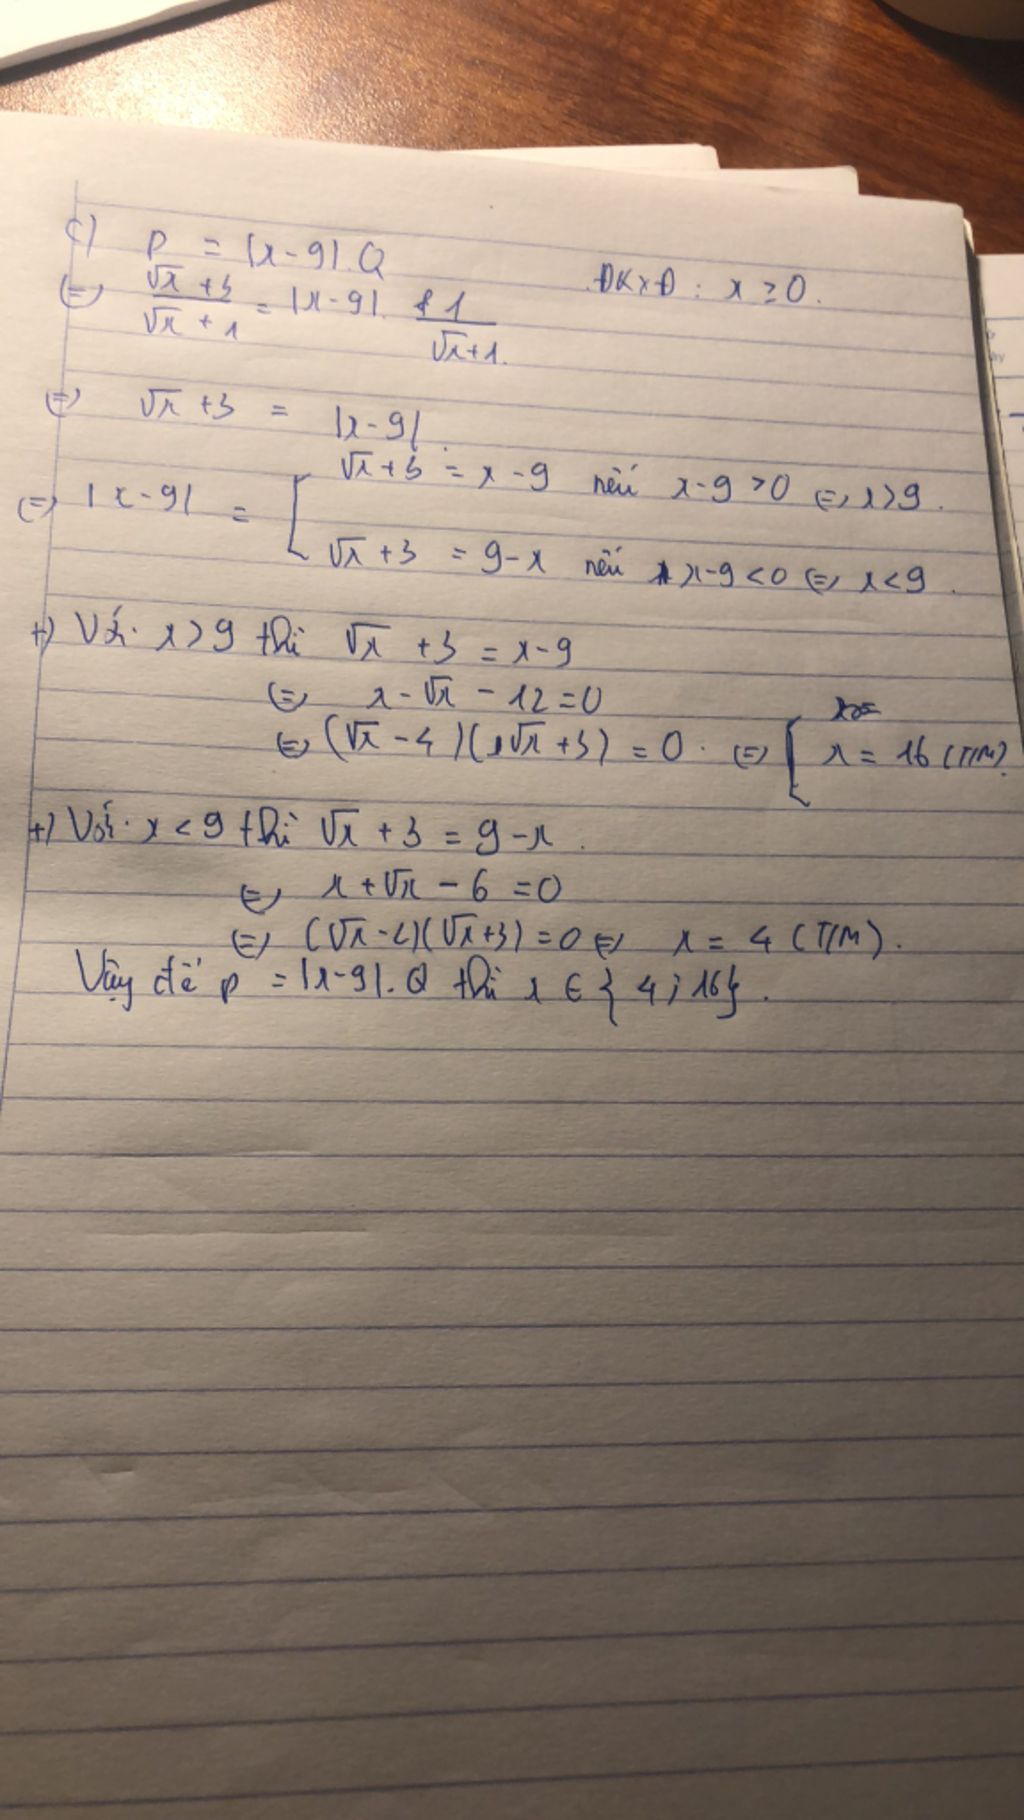 c) P = |x-9|.Q ĐKXĐ: x ≥ 0.
(=) √x + 3 / √x + 1 = |x-9|. 1 / √x+1.
(=) √x + 3 = |x-9|.
(=) |x-9| = [ √x+3 = x-9 nếu x-9 > 0 (=) x > 9.
√x + 3 = 9-x nếu x-9 < 0 (=) x < 9.
+) Với x > 9 thì √x + 3 = x-9
(=) x - √x - 12 = 0
(=) (√x - 4)(√x+3) = 0. (=) [ x = 16 (T/M)
+) Với x < 9 thì √x + 3 = 9-x.
(=) x + √x - 6 = 0
(=) (√x-2)(√x+3) = 0 (=) x = 4 (T/M).
Vậy để P = |x-9|.Q thì x ∈ { 4; 16}.